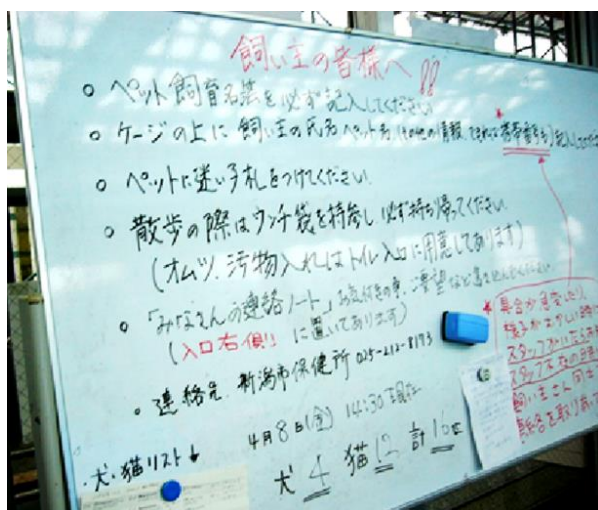 飼い主の皆様へ!!
○ ペット飼育名簿を必ず記入してください
○ ケージの上に飼い主の氏名 ペット名(その他の情報、できれば携帯番号も)記入してください
○ ペットに迷い子札をつけてください
○ 散歩の際はウンチ袋を持参し必ず持ち帰ってください
(オムツ、汚物入れはトイレ入口に用意してあります)
○ 「みなさんの連絡ノート」お気付きの事、ご要望など書き込んでください
(入口右側に置いてあります)
• 連絡先 新潟市保健所 025-212-8173
4月8日(金) 14:30 現在
犬・猫リスト↓
犬 4 猫 12 計 16匹
* 具合が
様子がおかしい時に
スタッフ
スタッフ
飼い主さん同士
連絡を取り